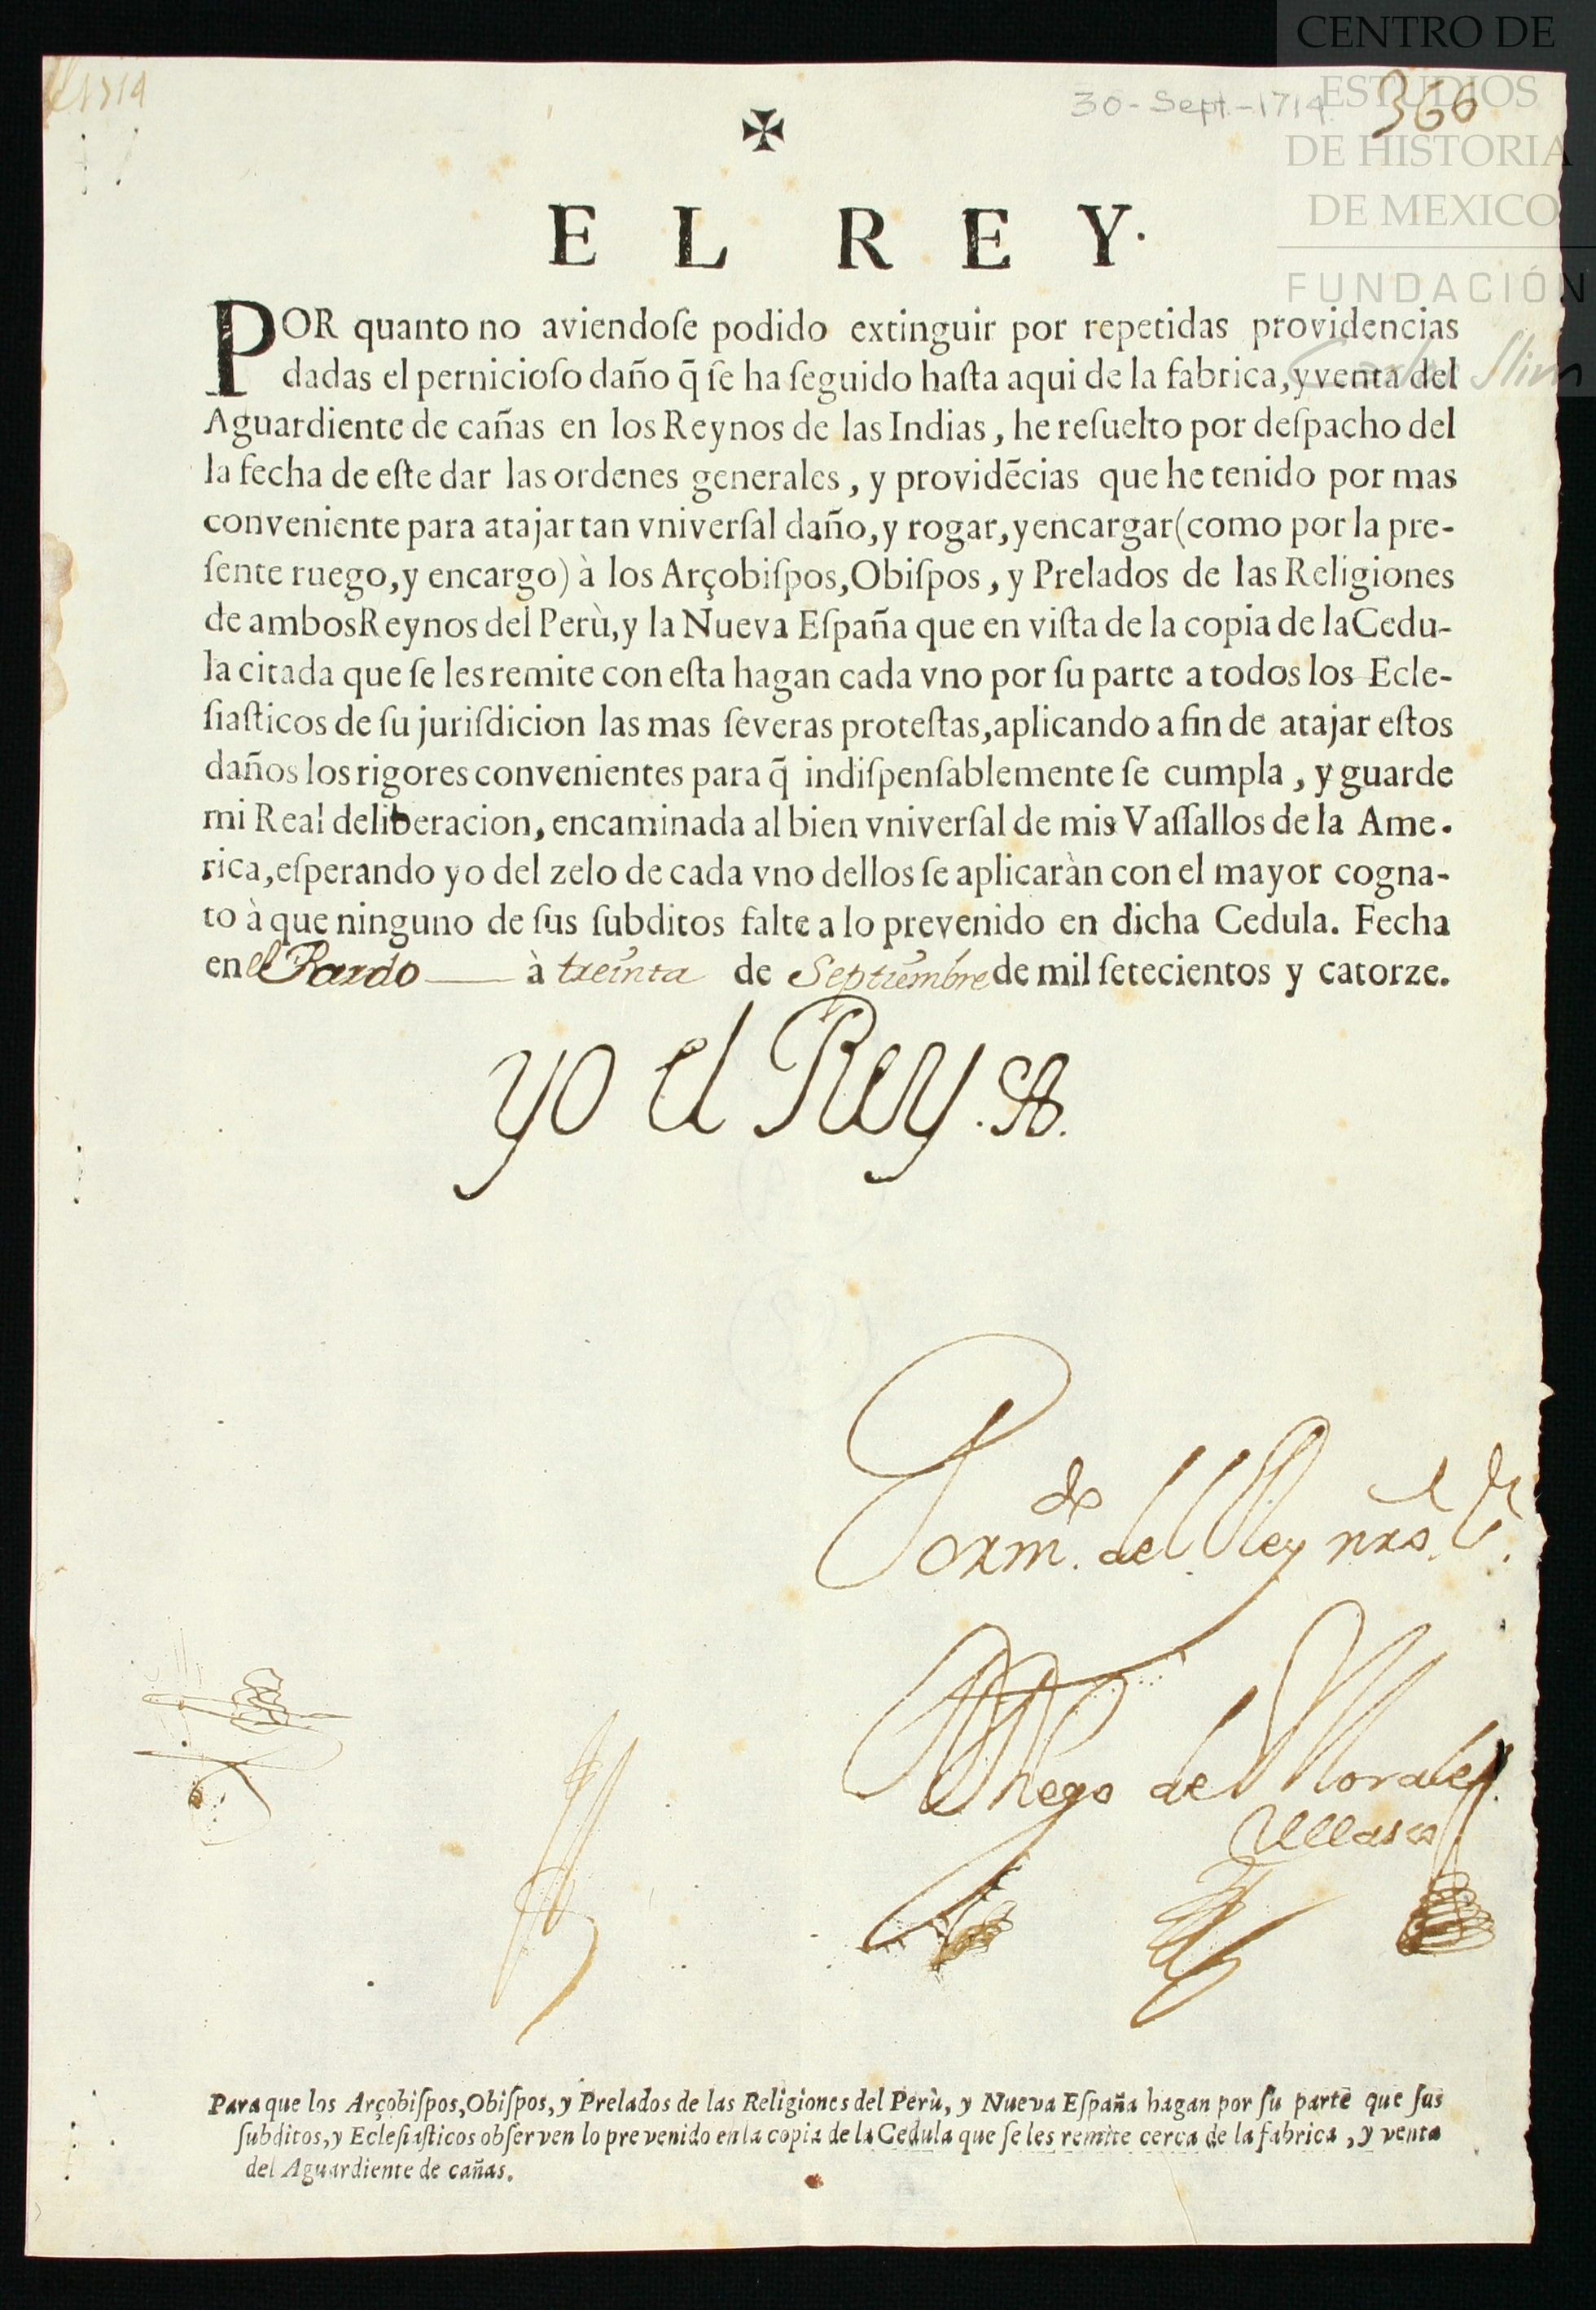 1714
30-Sept.-1714.
366
CENTRO DE
ESTUDIOS
DE HISTORIA
DE MEXICO
FUNDACIÓN
Carlos Slim
✠
EL REY.
POR quanto no aviendoſe podido extinguir por repetidas providencias
dadas el pernicioſo daño q̃ ſe ha ſeguido haſta aqui de la fabrica, y venta del
Aguardiente de cañas en los Reynos de las Indias, he reſuelto por deſpacho del
la fecha de eſte dar las ordenes generales, y providẽcias que he tenido por mas
conveniente para atajar tan vniverſal daño, y rogar, y encargar (como por la pre-
ſente ruego, y encargo) à los Arçobiſpos, Obiſpos, y Prelados de las Religiones
de ambos Reynos del Perù, y la Nueva Eſpaña que en viſta de la copia de la Cedu-
la citada que ſe les remite con eſta hagan cada vno por ſu parte a todos los Ecle-
ſiaſticos de ſu juriſdicion las mas ſeveras proteſtas, aplicando a fin de atajar eſtos
daños los rigores convenientes para q̃ indiſpenſablemente ſe cumpla, y guarde
mi Real deliberacion, encaminada al bien vniverſal de mis Vaſſallos de la Ame-
rica, eſperando yo del zelo de cada vno dellos ſe aplicaràn con el mayor cogna-
to à que ninguno de ſus ſubditos falte a lo prevenido en dicha Cedula. Fecha
en el Pardo à treinta de Septiembre de mil ſetecientos y catorze.
yo el Rey
Por m.do del Rey nro. S.r
Diego de Morales
Vellasco
Para que los Arçobiſpos, Obiſpos, y Prelados de las Religiones del Perù, y Nueva Eſpaña hagan por ſu parte que ſus
ſubditos, y Ecleſiaſticos obſerven lo prevenido en la copia de la Cedula que ſe les remite cerca de la fabrica, y venta
del Aguardiente de cañas.